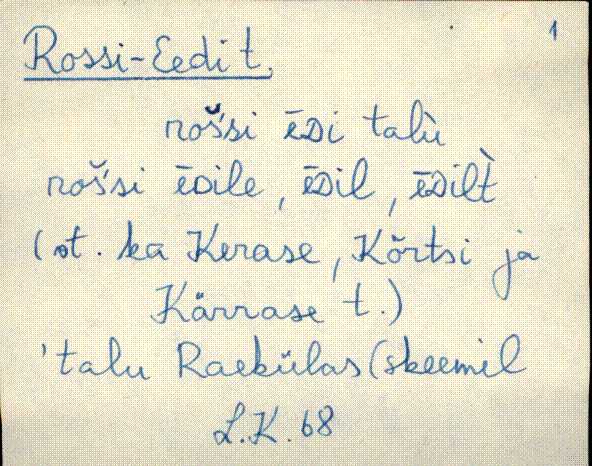 1
Rossi-Eedi t.
rošsi ēᴅi talù
rošsi ēᴅile, ēᴅil, ēᴅilt̀
(vt. ka Kerase, Kõrtsi ja
Kärrase t.)
'talu Raekülas (skeemil
L.K. 68